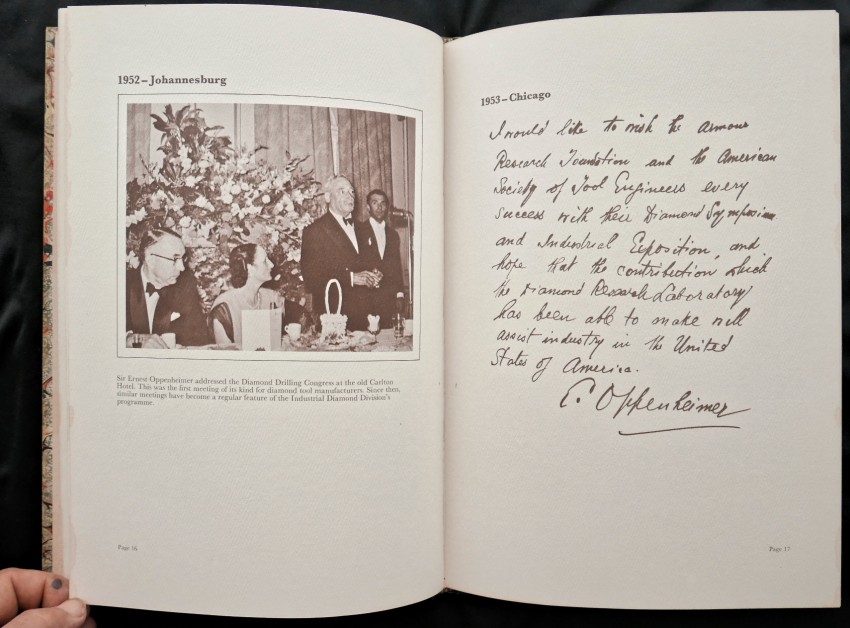 1952–Johannesburg
Sir Ernest Oppenheimer addressed the Diamond Drilling Congress at the old Carlton
Hotel. This was the first meeting of its kind for diamond tool manufacturers. Since then,
similar meetings have become a regular feature of the Industrial Diamond Division's
programme.
Page 16
1953–Chicago
I would like to wish the Armour
Research Foundation and the American
Society of Tool Engineers every
success with their Diamond Symposium
and Industrial Exposition, and
hope that the contribution which
the Diamond Research Laboratory
has been able to make will
assist industry in the United
States of America.
E. Oppenheimer
Page 17